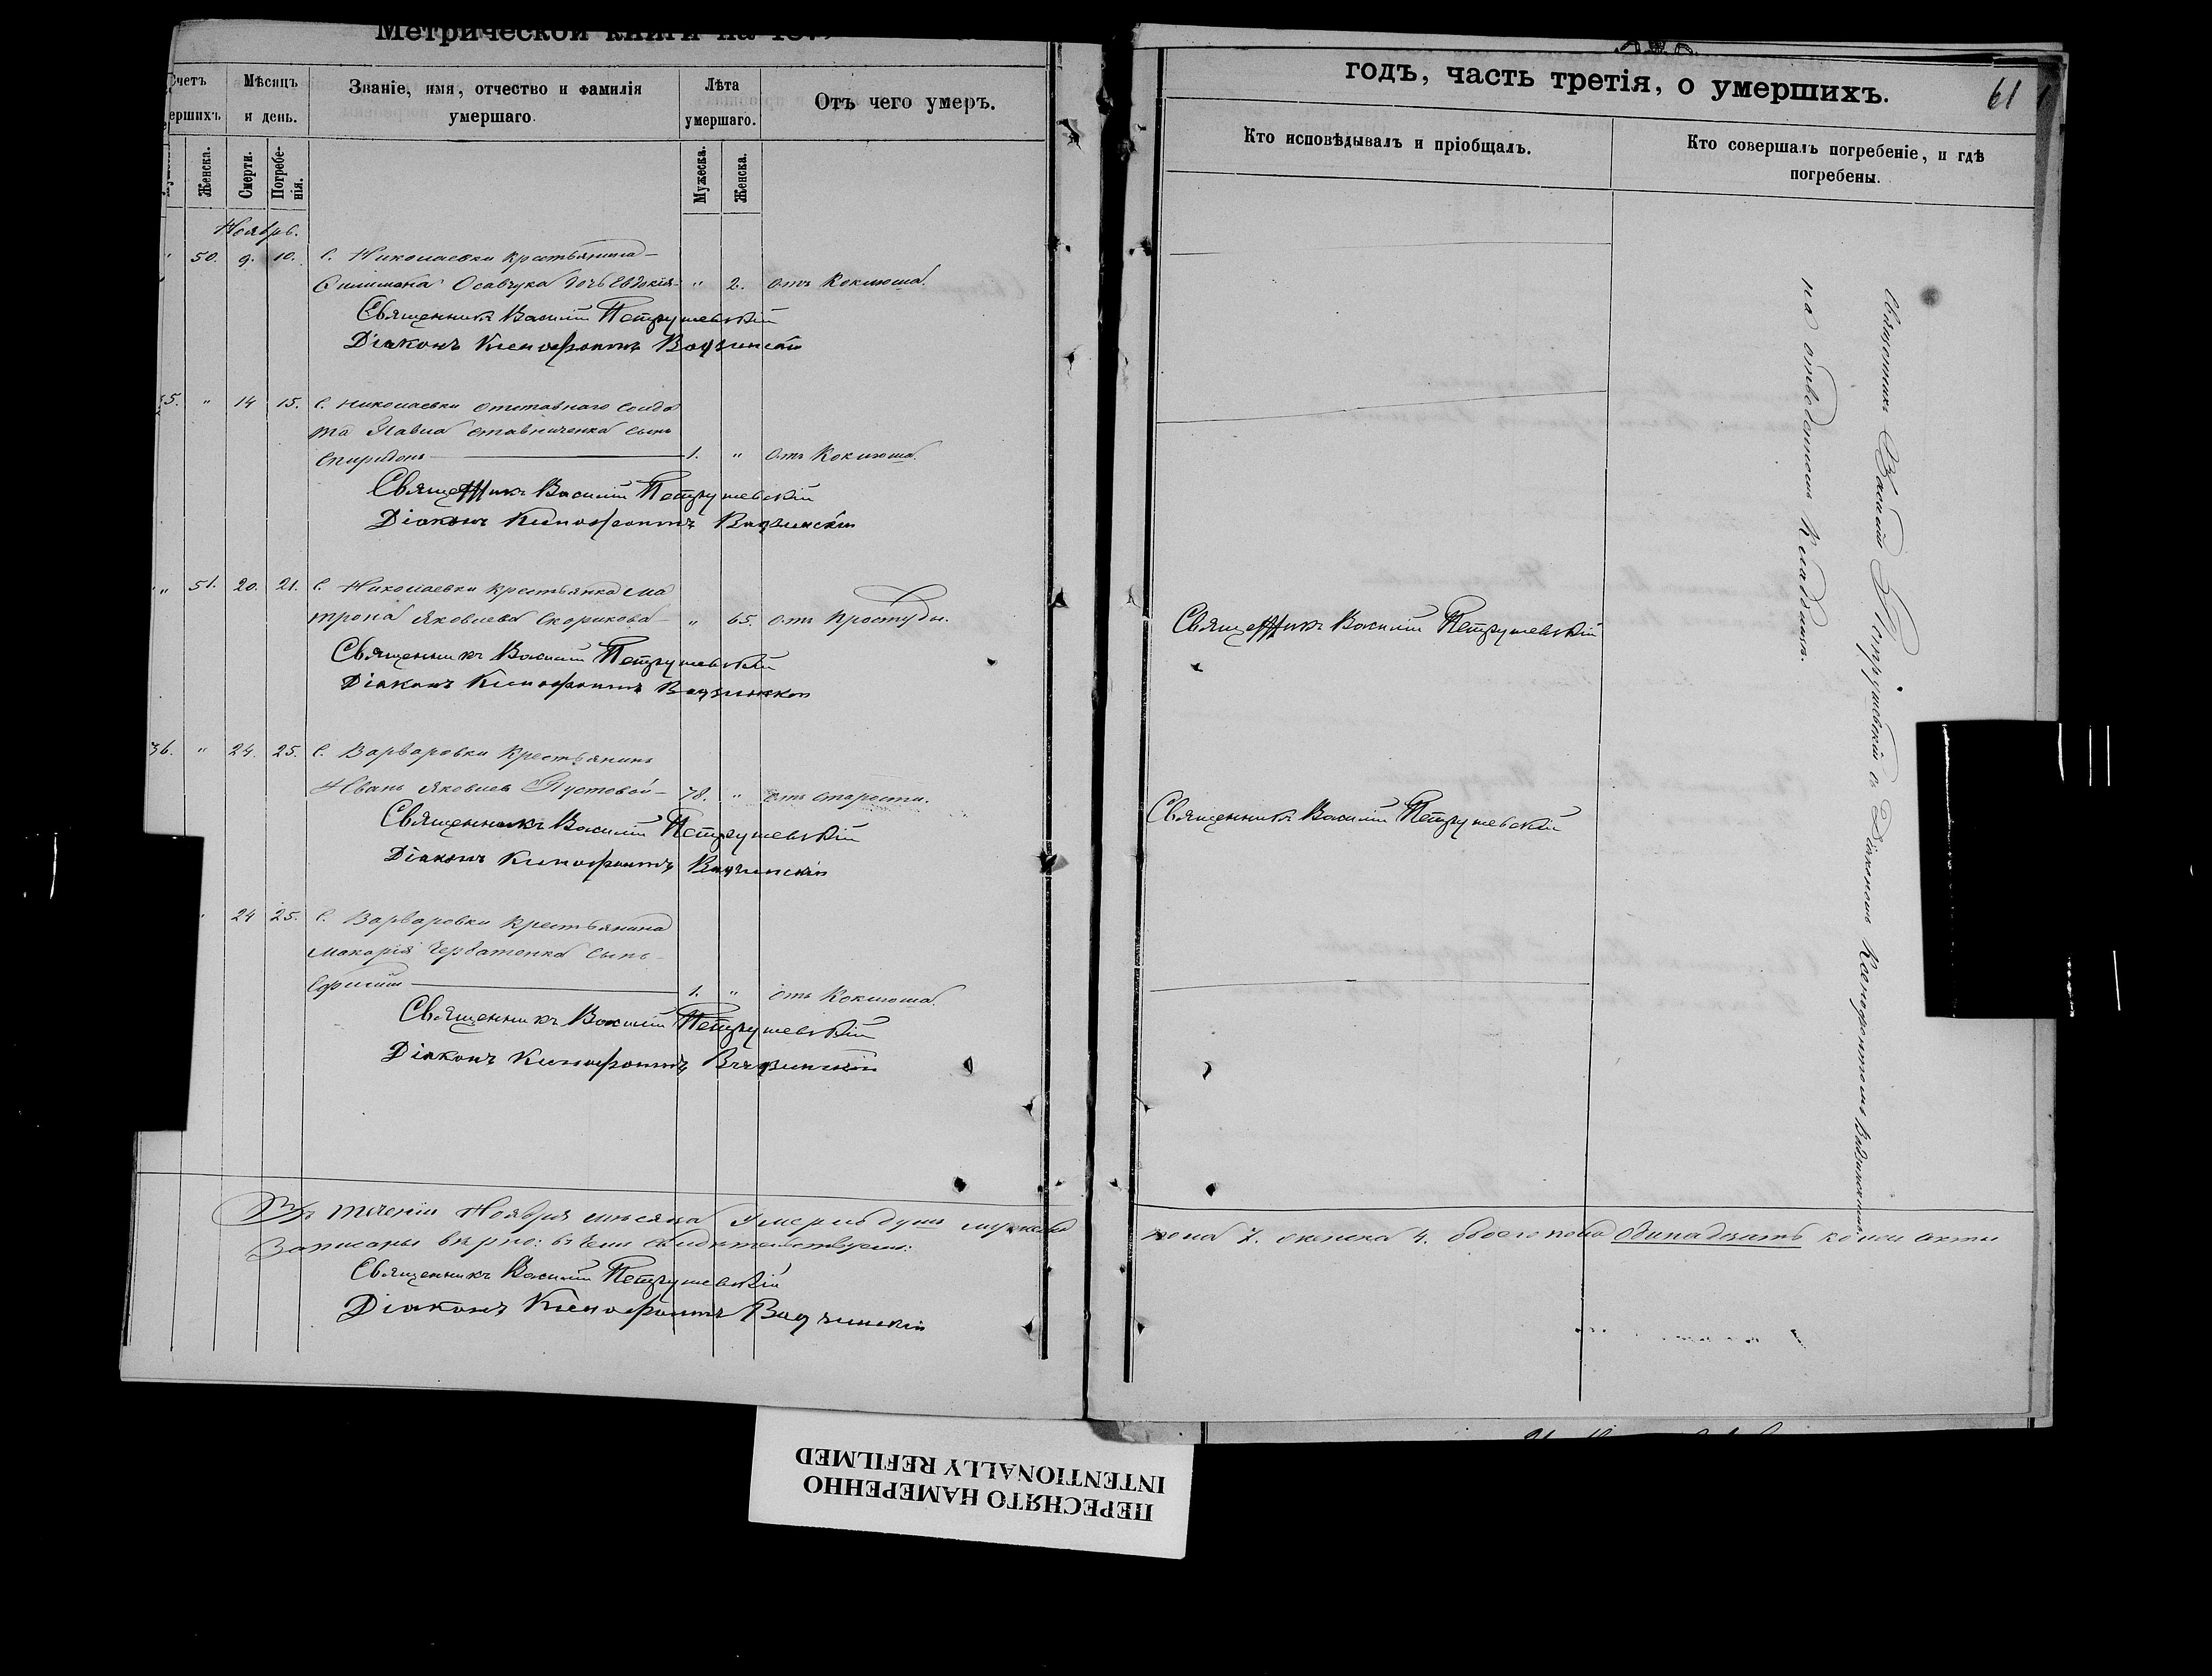 Метрической книги на 187
Счетъ
ершихъ.
Мѣсяцъ
и день.
Званіе, имя, отчество и фамилія
умершаго.
Лѣта
умершаго.
Отъ чего умеръ.
Женска.
Смерти.
Погребе-
нія.
Мужеска.
Женска.
Ноябрь.
50. 9. 10. С. Николаевки крестьянина
Осавчука дочь Евдокія " 2. отъ Коклюша.
Священникъ Василій Петрушевскій
Діаконъ Ксенофонтъ
35. " 14 15. С. Николаевки отставнаго Солда
та Павла Ставниченка сынъ
Спиридонъ 1. " отъ Коклюша.
Священникъ Василій Петрушевскій
Діаконъ Ксенофонтъ
" 51. 20. 21. С. Николаевки крестьянка Ма
трона Яковлева Скорикова " 65. отъ Простуды.
Священникъ Василій Петрушевскій
Діаконъ Ксенофонтъ
36. " 24. 25. С. Варваровки Крестьянинъ
Иванъ Яковлев Пустовой 78. " отъ старости.
Священникъ Василій Петрушевскій
Діаконъ Ксенофонтъ
" 24 25. С. Варваровки Крестьянина
Макарія сынъ
1. " отъ Коклюша.
Священникъ Василій Петрушевскій
Діаконъ Ксенофонтъ
Въ теченіи Ноября мѣсяца умерло душъ мужеска
Записаны вѣрно: въ чемъ свидѣтельствуемъ:
Священникъ Василій Петрушевскій
Діаконъ Ксенофонтъ
годъ, часть третія, о умершихъ.
61
Кто исповѣдывалъ и пріобщалъ.
Кто совершалъ погребеніе, и гдѣ
погребены.
Священникъ Василій Петрушевскій
Священникъ Василій Петрушевскій
Священникъ Василій Петрушевскій съ Діакономъ Ксенофонтомъ
на отведенномъ Кладбищѣ.
пола 7. женска 4. обоего пола одинадцать акты
ПЕРЕСНЯТО НАМЕРЕННО
INTENTIONALLY REFILMED